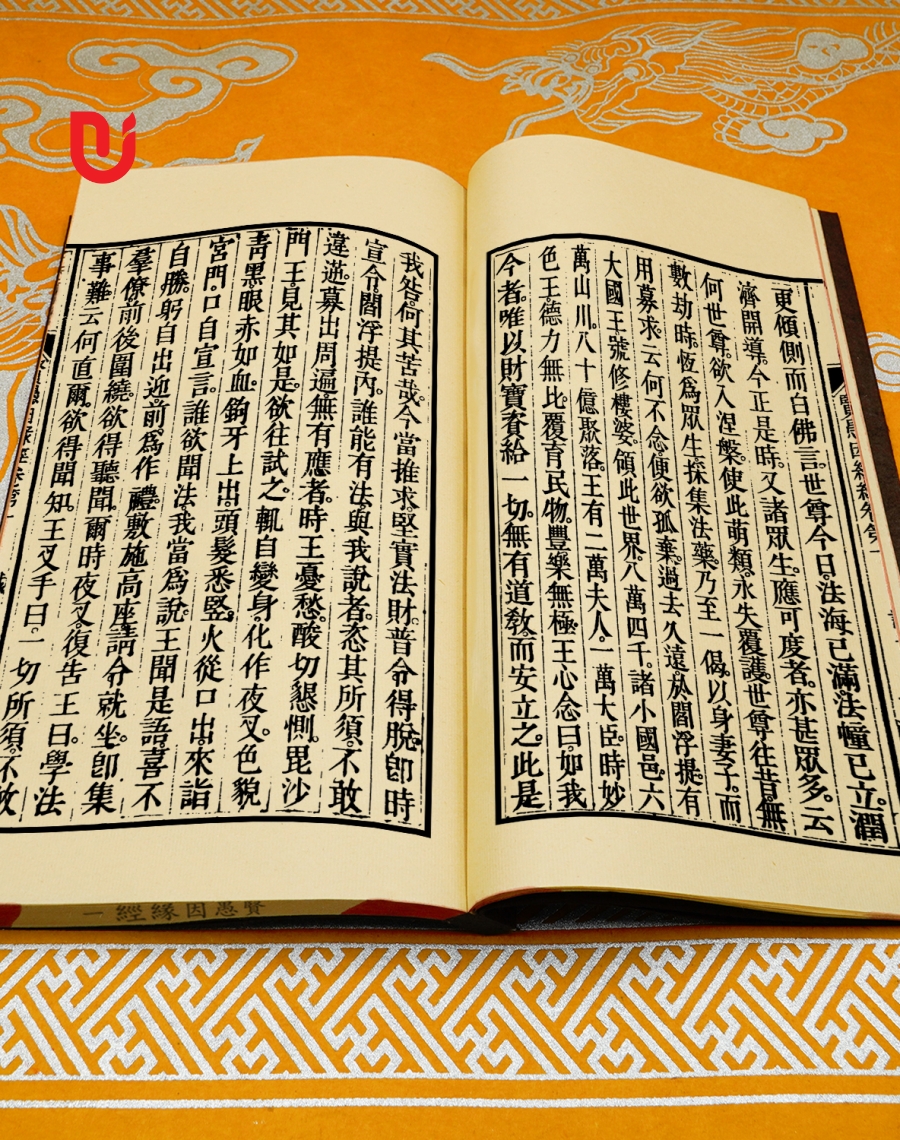 更傾側而白佛言。世尊今日。法海已滿。法幢已立。潤
濟開導。今正是時。又諸眾生。應可度者。亦甚眾多。云
何世尊。欲入涅槃。使此萌類。永失覆護。世尊往昔。無
數劫時。恆為眾生。採集法藥。乃至一偈。以身妻子。而
用募求。云何不念。便欲孤棄。過去久遠。於閻浮提。有
大國王。號修樓婆。領此世界。八萬四千。諸小國邑。六
萬山川。八十億聚落。王有二萬夫人。一萬大臣。時妙
色王。德力無比。覆育民物。豐樂無極。王心念曰。如我
今者。唯以財寶。資給一切。無有道教。而安立之。此是
我咎。何其苦哉。今當推求。堅實法財。普令得脫。卽時
宣令。閻浮提內。誰能有法。與我說者。恣其所須。不敢
違逆。募出周遍。無有應者。時王憂愁。酸切懇惻。毘沙
門王。見其如是。欲往試之。輒自變身。化作夜叉。色貌
靑黑。眼赤如血。鉤牙上出。頭髮悉竪。火從口出。來詣
宮門。口自宣言。誰欲聞法。我當為說。王聞是語。喜不
自勝。躬自出迎。前為作禮。敷施高座。請令就坐。卽集
羣僚。前後圍繞。欲得聽聞。爾時夜叉。復告王曰。學法
事難。云何直爾。欲得聞知。王叉手曰。一切所須。不敢
賢愚因緣經一